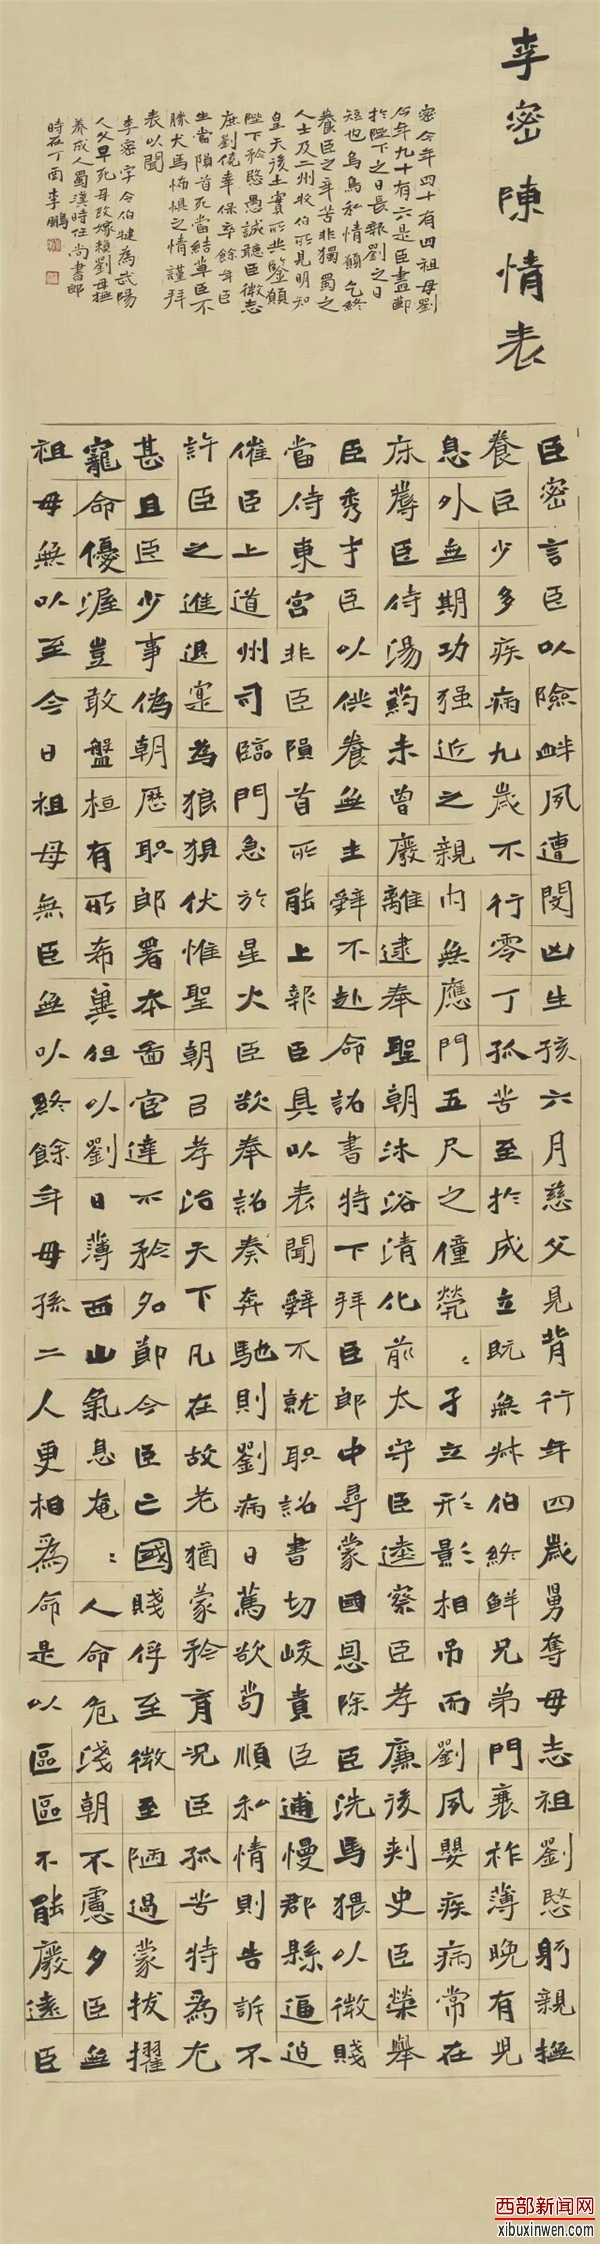 李密陳情表
臣密言臣以險衅夙遭閔凶生孩六月慈父見背行年四歲舅奪母志祖劉愍躬親撫
養臣少多疾病九歲不行零丁孤苦至於成立既無叔伯終鮮兄弟門衰祚薄晚有兒
息外無期功强近之親內無應門五尺之僮煢〻孑立形影相吊而劉夙嬰疾病常在
床蓐臣侍湯藥未曾廢離逮奉聖朝沐浴清化前太守臣逵察臣孝廉後刺史臣榮舉
臣秀才臣以供養無主辭不赴命詔書特下拜臣郎中尋蒙國恩除臣洗馬猥以微賤
當侍東宮非臣隕首所能上報臣具以表聞辭不就職詔書切峻責臣逋慢郡縣逼迫
催臣上道州司臨門急於星火臣欲奉詔奏奔馳則劉病日篤欲苟順私情則告訴不
許臣之進退寔為狼狽伏惟聖朝㠯孝治天下凡在故老猶蒙矜育況臣孤苦特為尤
甚且臣少事偽朝歷職郎署本啚宦達不矜名節今臣亡國賤俘至微至陋過蒙拔擢
寵命優渥豈敢盤桓有所希冀但以劉日薄西山氣息奄〻人命危淺朝不慮夕臣無
祖母無以至今日祖母無臣無以終餘年母孫二人更相為命是以區區不能廢遠臣
密今年四十有四祖母劉
今年九十有六是臣盡節
於陛下之日長報劉之日
短也烏鳥私情願乞終
養臣之辛苦非獨蜀之
人士及二州牧伯所見明知
皇天後土實所共鑒願
陛下矜愍愚誠聽臣微志
庶劉僥幸保卒餘年臣
生當隕首死當結草臣不
勝犬馬怖懼之情謹拜
表以聞
李密字令伯犍為武陽
人父早死母改嫁賴劉母撫
養成人蜀漢時任尚書郎
時在丁酉李鵬
西部新闻网
xibuxinwen.com